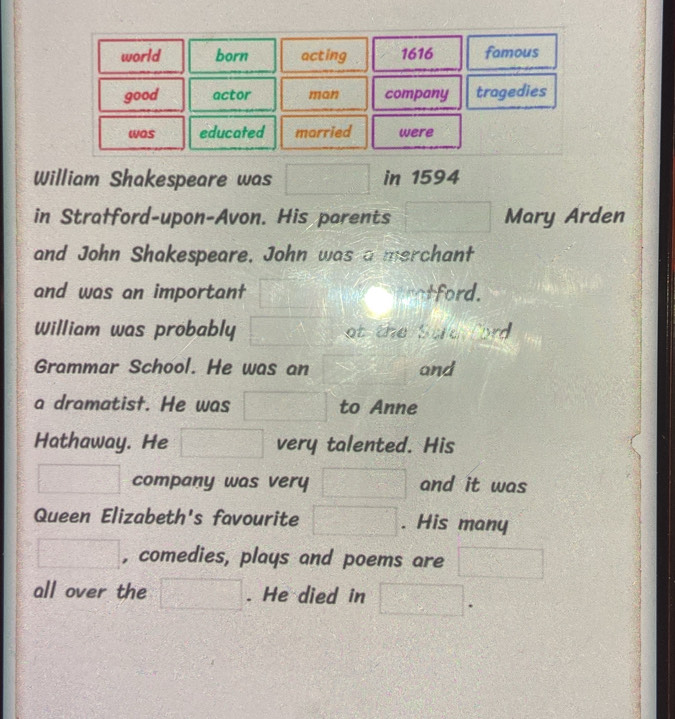 world born acting 1616 famous
good actor man company tragedies
was educated married were
William Shakespeare was in 1594
in Stratford-upon-Avon. His parents Mary Arden
and John Shakespeare. John was a merchant
and was an important
William was probably at the
Grammar School. He was an and
a dramatist. He was to Anne
Hathaway. He very talented. His
company was very and it was
Queen Elizabeth's favourite . His many
, comedies, plays and poems are
all over the . He died in .